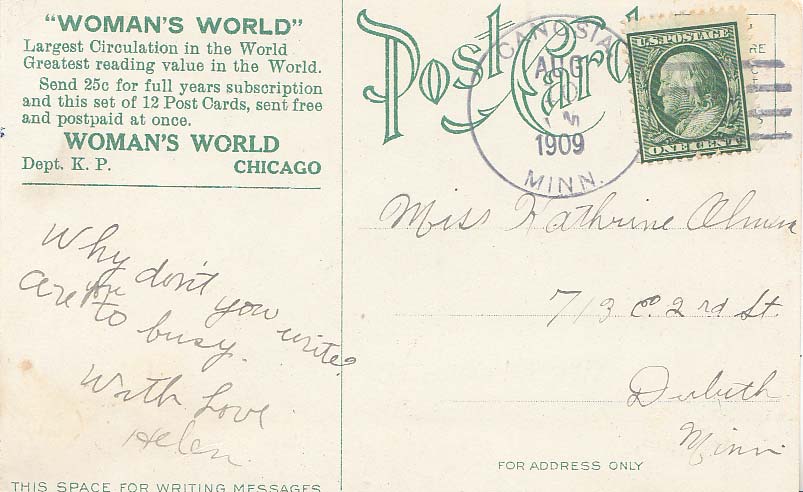 "WOMAN'S WORLD"
Largest Circulation in the World
Greatest reading value in the World.
Send 25c for full years subscription
and this set of 12 Post Cards, sent free
and postpaid at once.
WOMAN'S WORLD
Dept. K. P. CHICAGO
Why don't you write?
Are you to busy.
With Love
Helen.
THIS SPACE FOR WRITING MESSAGES
Post Card
CANOSIA
AUG
1909
MINN.
U.S. POSTAGE
ONE CENT
Miss Kathrine
713 E. 2rd St.
Duluth
Minn
FOR ADDRESS ONLY